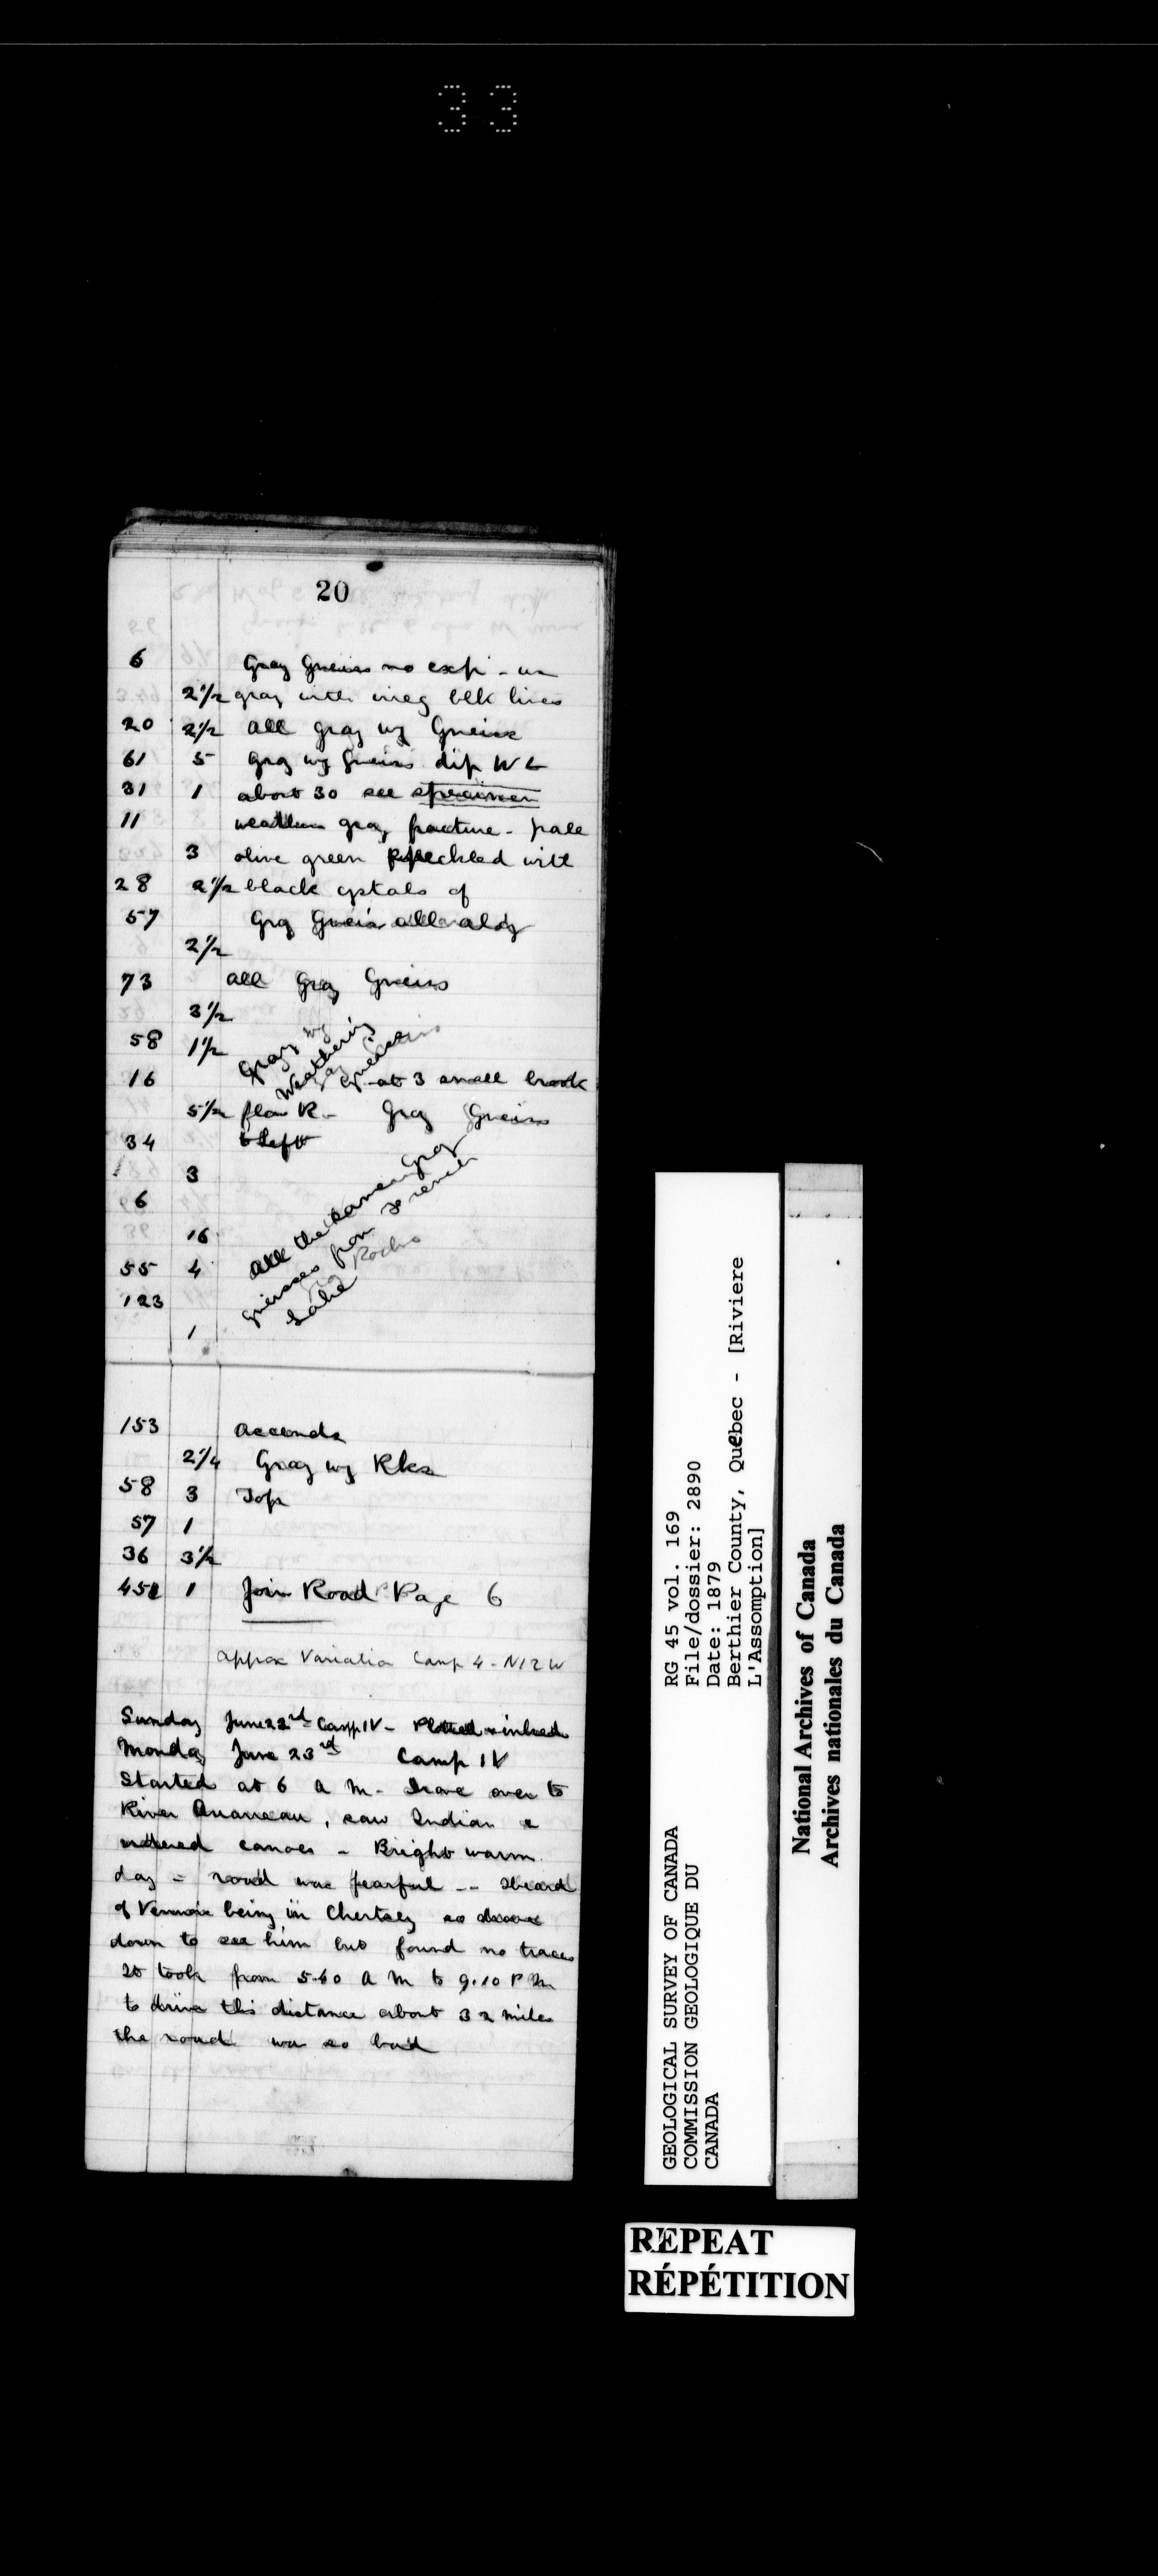 33
20
6 Gray Gneiss no exp -
2 1/2 gray with irreg blk lines
20 2 1/2 all gray wg Gneiss
61 5 Gray wg Gneiss dip W L
31 1 about 30 see specimen
11 weathers gray fracture - pale
3 olive green speckled with
28 2 1/2 black cystals of
57 Gray Gneiss all along
2 1/2
73 all Gray Gneiss
3 1/2
58 1 1/2
Gray wg
Weathering
16 at 3 small brook
5 1/2 flow R - Gray Gneiss
34 to Left
3
6
16
All the same gray
55 4 gneisses from
123 Lake
1
153 accends
2 1/4 Gray wg Rks
58 3 Top
57 1
36 3 1/2
451 1 Join Road Page 6
approx Variation Camp 4 - N12W
Sunday June 22nd - Camp IV - Plotted & inked
Monday June 23rd Camp IV
Started at 6 A M - Drove over to
River , saw Indian &
ordered canoes - Bright warm
day - road was fearful -- Heard
of Vennor being in Chertsey so drove
down to see him but found no traces
It took from 5.40 A M to 9.10 P M
to drive this distance about 32 miles
the road was so bad
GEOLOGICAL SURVEY OF CANADA
COMMISSION GEOLOGIQUE DU
CANADA
RG 45 vol. 169
File/dossier: 2890
Date: 1879
Berthier County, Québec - [Riviere
L'Assomption]
National Archives of Canada
Archives nationales du Canada
REPEAT
RÉPÉTITION